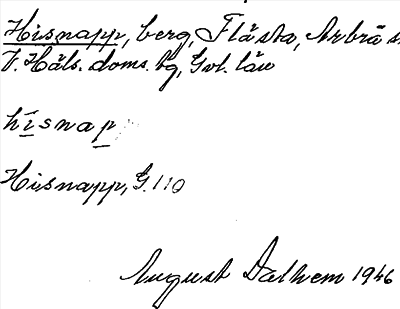 Hisnapp, berg, Flästa, Arbrå s
V. Häls. doms. bg, Gvl. län
hisnap
Hisnapp, G. 110
August Dalhem 1946